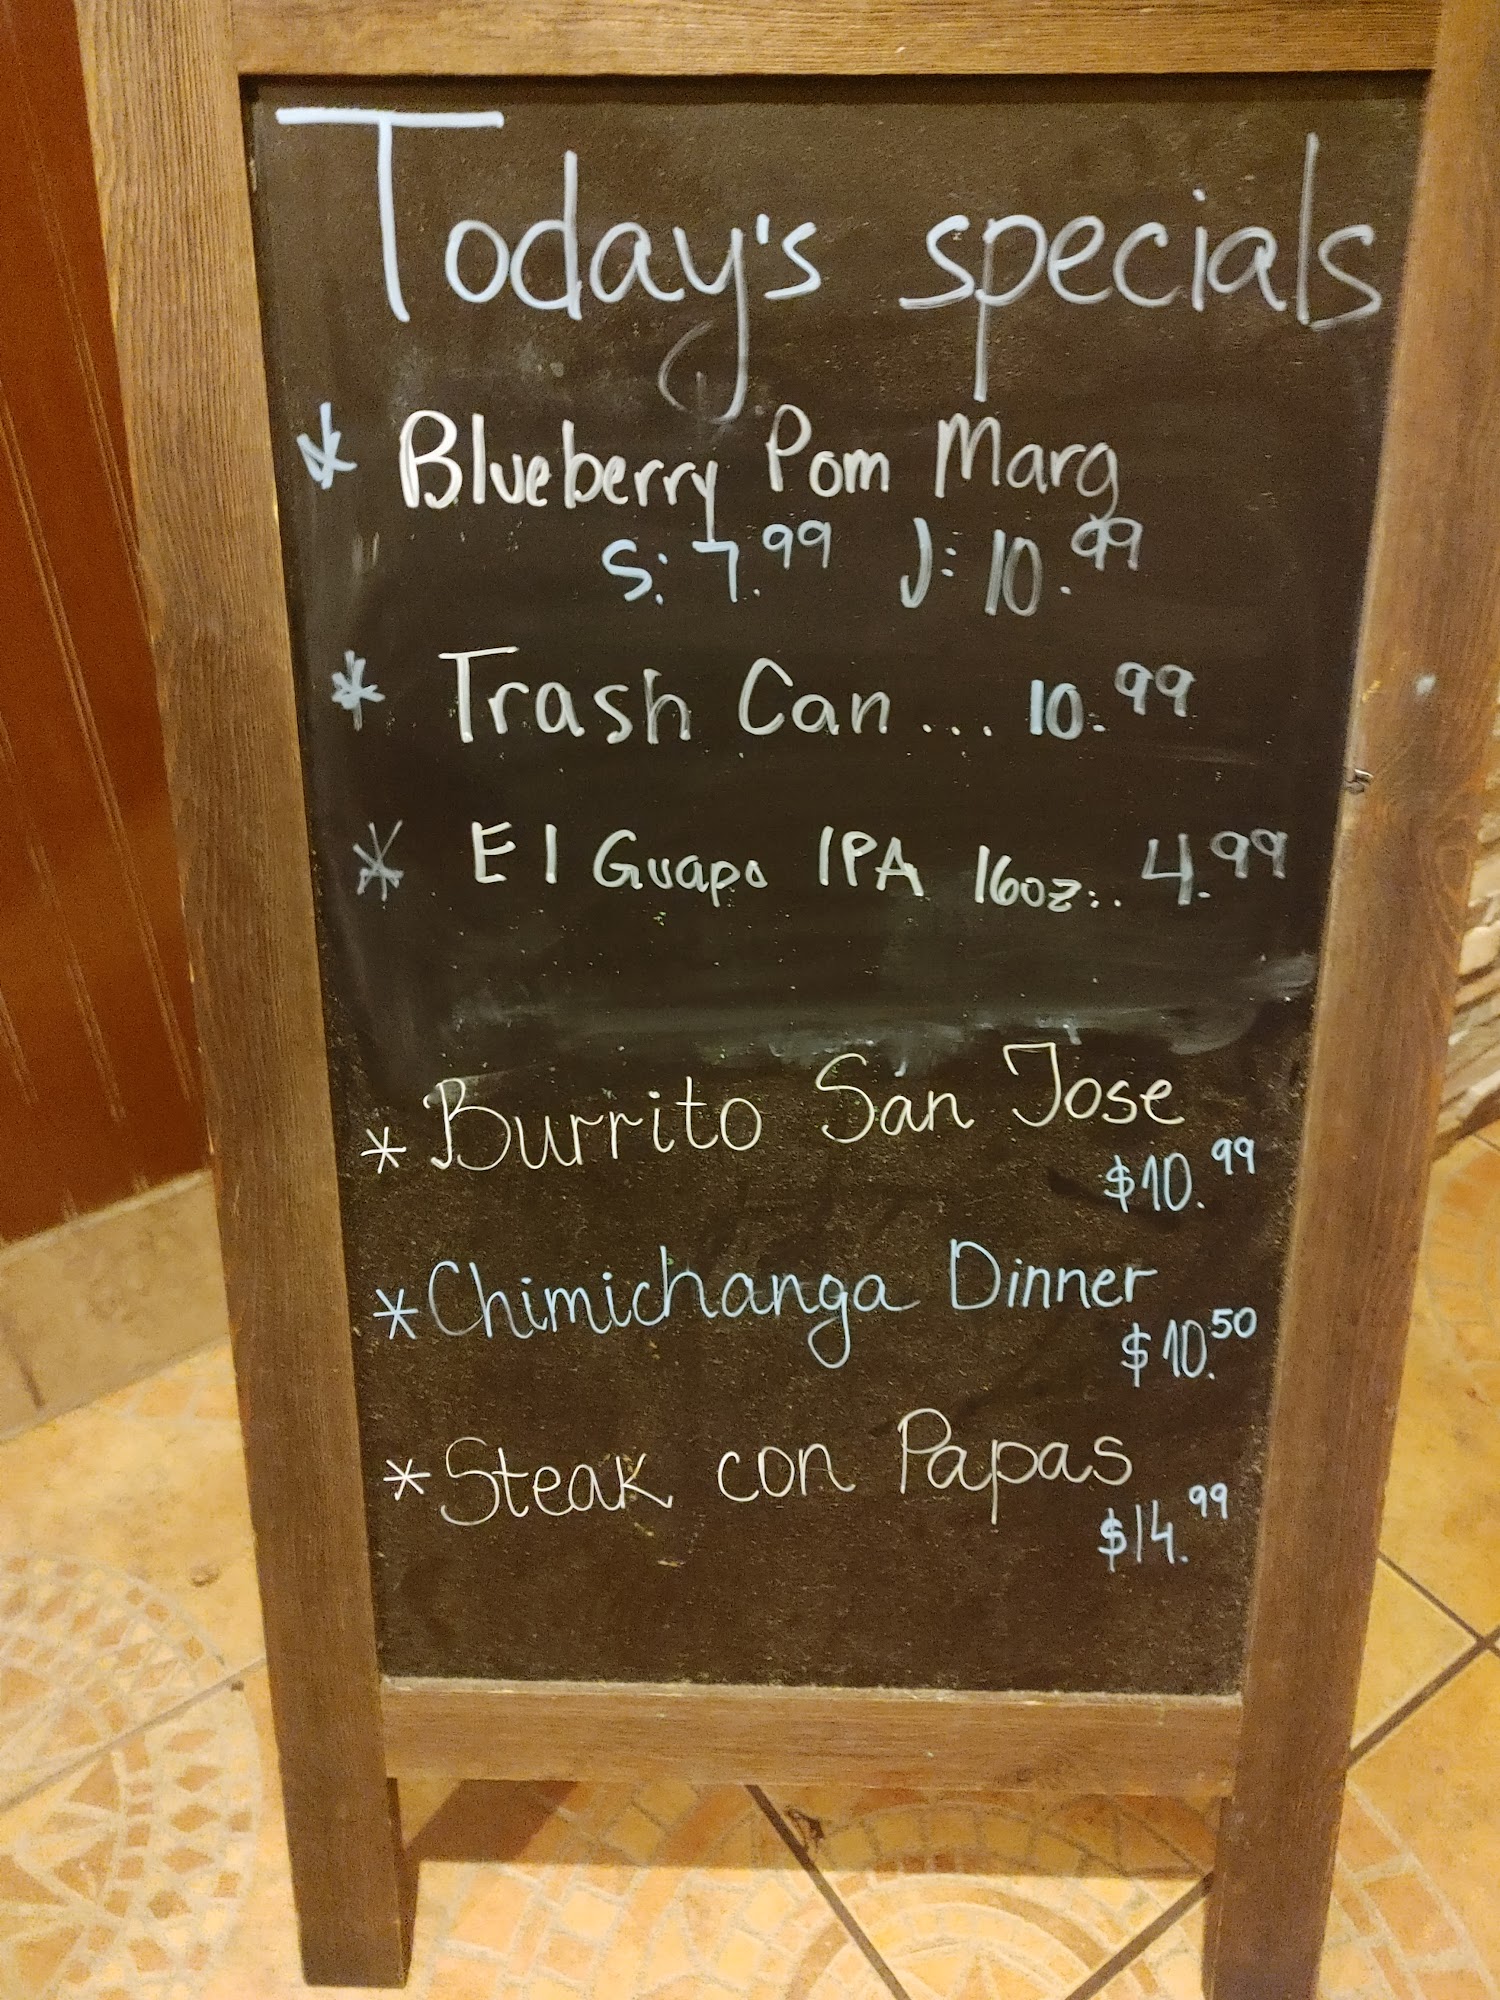 Today's specials
* Blueberry Pom Marg
S: 7.99 J: 10.99
* Trash Can... 10.99
* El Guapo IPA 16oz... 4.99
* Burrito San Jose
$10.99
* Chimichanga Dinner
$10.50
* Steak con Papas
$14.99